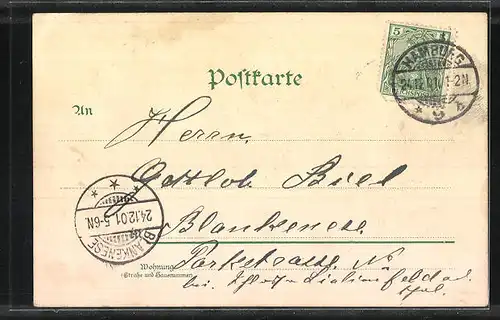 5
HAMBURG
24.12.01. 1-2N.
* 5 *
Postkarte
An
Herrn
Gottlob Biel
Blankenese
Parkstrasse
bei
24.12.01 5-6N.
BLANKENESE
Wohnung
(Straße und Hausnummer)